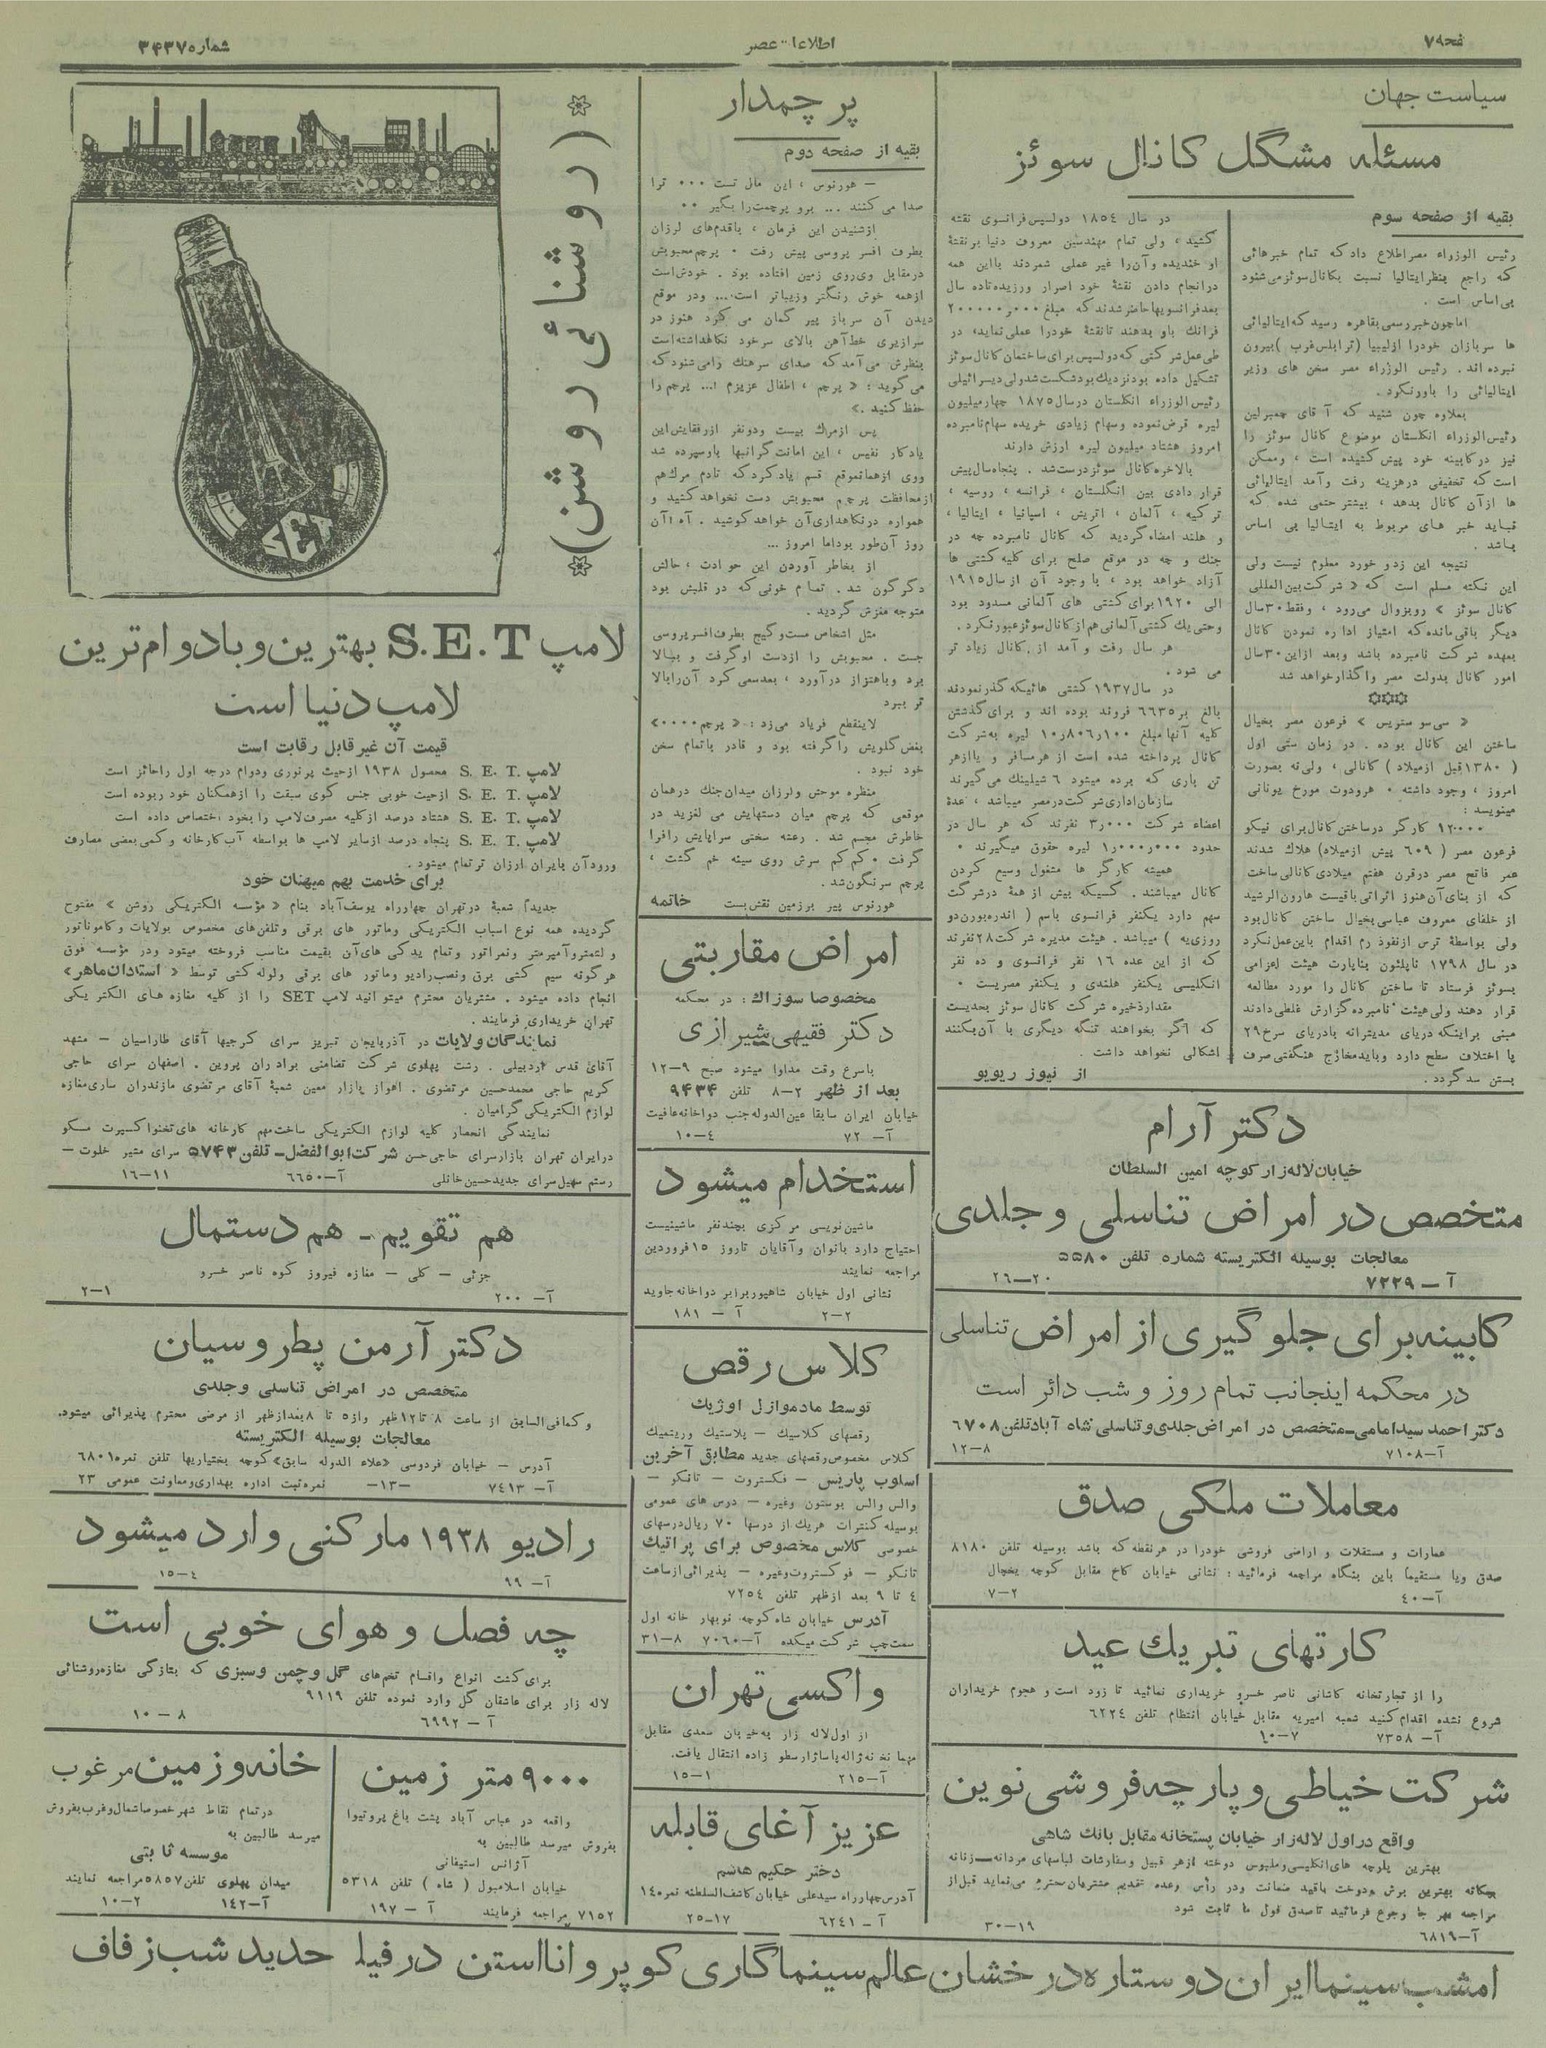 صفحه ۷
اطلاعات عصر
شماره ۳۴۳۷
سیاست جهان
مسئله مشگل کانال سوئز
بقیه از صفحه سوم
رئیس الوزراء مصر اطلاع داد که تمام خبرهائی
که راجع بنظر ایتالیا نسبت بکانال سوئز می شنود
بی اساس است .
اما چون خبر رسمی بقاهره رسید که ایتالیائی
ها سربازان خود را از لیبیا (ترابلس غرب ) بیرون
نبرده اند . رئیس الوزراء مصر سخن های وزیر
ایتالیائی را باور نکرد .
بعلاوه چون شنید که آقای چمبرلین
رئیس الوزراء انگلستان موضوع کانال سوئز را
نیز در کابینه خود پیش کشیده است ، و ممکن
است که تخفیفی در هزینه رفت و آمد ایتالیائی
ها از آن کانال بدهد ، بیشتر حتمی شده که
نباید خبر های مربوط به ایتالیا بی اساس
باشد .
نتیجه این زد و خورد معلوم نیست ولی
این نکته مسلم است که « شرکت بین المللی
کانال سوئز » رو بزوال می رود ، و فقط ۳۰ سال
دیگر باقی مانده که امتیاز اداره نمودن کانال
بعهده شرکت نامبرده باشد و بعد از این ۳۰ سال
امور کانال بدولت مصر واگذار خواهد شد
« سی سو ستریس » فرعون مصر بخیال
ساختن این کانال بوده . در زمان ستی اول
( ۱۳۸۰ قبل از میلاد ) کانالی ، ولی نه بصورت
امروز ، وجود داشته . هرودوت مورخ یونانی
مینویسد :
۱۲۰۰۰۰ کارگر در ساختن کانال برای نیکو
فرعون مصر ( ۶۰۹ پیش از میلاد) هلاک شدند
عمر فاتح مصر در قرن هفتم میلادی کانالی ساخت
که از بنای آن هنوز اثراتی باقیست هارون الرشید
از خلفای معروف عباسی بخیال ساختن کانال بود
ولی بواسطه ترس از نفوذ رم اقدام باین عمل نکرد
در سال ۱۷۹۸ ناپلئون بناپارت هیئت اعزامی
بسوئز فرستاد تا ساختن کانال را مورد مطالعه
قرار دهند ولی هیئت نامبرده گزارش غلطی دادند
مبنی بر اینکه دریای مدیترانه با دریای سرخ ۲۹
پا اختلاف سطح دارد و باید مخارج هنگفتی صرف
بستن سد گردد .
در سال ۱۸۵۴ دولسپس فرانسوی نقشه
کشید ، ولی تمام مهندسین معروف دنیا بر نقشه
او خندیده و آن را غیر عملی شمردند با این همه
در انجام دادن نقشه خود اصرار ورزیده تا ده سال
بعد فرانسویها حاضر شدند که مبلغ ۲۰۰۰۰۰ر۰۰۰
فرانک باو بدهند تا نقشه خود را عملی نماید، در
طی عمل شرکتی که دولسپس برای ساختمان کانال سوئز
تشکیل داده بود نزدیک بود شکست شد ولی دیسرائیلی
رئیس الوزراء انگلستان در سال ۱۸۷۵ چهار میلیون
لیره قرض نموده و سهام زیادی خریده سهام نامبرده
امروز هشتاد میلیون لیره ارزش دارند
بالاخره کانال سوئز درست شد . پنجاه سال پیش
قرار دادی بین انگلستان ، فرانسه ، روسیه ،
ترکیه ، آلمان ، اتریش ، اسپانیا ، ایتالیا ،
و هلند امضاء گردید که کانال نامبرده چه در
جنك و چه در موقع صلح برای کلیه کشتی ها
آزاد خواهد بود ، با وجود آن از سال ۱۹۱۵
الی ۱۹۲۰ برای کشتی های آلمانی مسدود بود
و حتی یك کشتی آلمانی هم از کانال سوئز عبور نکرد.
هر سال رفت و آمد از کانال زیاد تر
می شود .
در سال ۱۹۳۷ کشتی هائیکه گذر نمودند
بالغ بر ۶۶۳۵ فروند بوده اند و برای گذشتن
کلیه آنها مبلغ ۱۰۰ر۸۰۶ر۱۰ لیره به شرکت
کانال پرداخته شده است از هر مسافر و یا از هر
تن باری که برده میشود ۶ شیلینك می گیرند
سازمان اداری شرکت در مصر میباشد ، عدهٔ
اعضاء شرکت ۳ر۰۰۰ نفرند که هر سال در
حدود ۱ر۰۰۰ر۰۰۰ لیره حقوق میگیرند .
همیشه کارگر ها مشغول وسیع کردن
کانال میباشند . کسیکه بیش از همه در شرکت
سهم دارد یکنفر فرانسوی باسم ( اندره بورن دو
روزی یه ) میباشد . هیئت مدیره شرکت ۲۸ نفرند
که از این عده ۱۶ نفر فرانسوی و ده نفر
انگلیسی یکنفر هلندی و یکنفر مصریست .
مقدار ذخیره شرکت کانال سوئز بحدیست
که اگر بخواهند تنگه دیگری با آن بکنند
اشکالی نخواهد داشت .
از نیوز ریویو
دکتر آرام
خیابان لاله زار کوچه امین السلطان
متخصص در امراض تناسلی و جلدی
معالجات بوسیله الکتریسته شماره تلفن ۵۵۸۰
آ – ۷۲۲۹
۲۰–۲۶
کابینه برای جلوگیری از امراض تناسلی
در محکمه اینجانب تمام روز و شب دائر است
دکتر احمد سید امامی-متخصص در امراض جلدی و تناسلی شاه آباد تلفن ۶۷۰۸
آ–۷۱۰۸
۸–۱۲
معاملات ملکی صدق
عمارات و مستقلات و اراضی فروشی خود را در هر نقطه که باشد بوسیله تلفن ۸۱۸۰
صدق و یا مستقیما باین بنگاه مراجعه فرمائید : نشانی خیابان کاخ مقابل کوچه یخچال
آ–۴۰
۲–۷
کارتهای تبریك عید
را از تجارتخانه کاشانی ناصر خسرو خریداری نمائید تا زود است و هجوم خریداران
شروع نشده اقدام کنید شعبه امیریه مقابل خیابان انتظام تلفن ۶۲۲۴
آ– ۷۳۵۸
۷–۱۰
شرکت خیاطی و پارچه فروشی نوین
واقع در اول لاله زار خیابان پستخانه مقابل بانك شاهی
بهترین پارچه های انگلیسی و ملبوس دوخته از هر قبیل و سفارشات لباسهای مردانه – زنانه
بچگانه بهترین برش و دوخت باقید ضمانت و در رأس وعده تقدیم مشتریان محترم می نماید قبل از
مراجعه بهر جا رجوع فرمائید تا صدق قول ما ثابت شود
آ–۶۸۱۹
۱۹–۳۰
پرچمدار
بقیه از صفحه دوم
– هورنوس ، این مال تست ... ترا
صدا می کنند ... برو پرچمت را بگیر ..
از شنیدن این فرمان ، با قدم های لرزان
بطرف افسر پروسی پیش رفت . پرچم محبوبش
در مقابل وی روی زمین افتاده بود . خودش است
از همه خوش رنگتر و زیباتر است... و در موقع
دیدن آن سرباز پیر گمان می کرد هنوز در
سرازیری خط آهن بالای سر خود نگاهداشته است
بنظرش می آمد که صدای سرهنك را می شنود که
می گوید : « پرچم ، اطفال عزیزم !... پرچم را
حفظ کنید .»
پس از مرك بیست و دو نفر از رفقایش این
یادگار نفیس ، این امانت گرانبها باو سپرده شد
و وی از همان موقع قسم یاد کرد که تا دم مرك هم
از محافظت پرچم محبوبش دست نخواهد کشید و
همواره در نگاهداری آن خواهد کوشید . آه ! آن
روز آن طور بود اما امروز ...
از بخاطر آوردن این حوادث ، حالش
دگرگون شد . تمام خونی که در قلبش بود
متوجه مغزش گردید .
مثل اشخاص مست و گیج بطرف افسر پروسی
جست . محبوبش را از دست او گرفت و ببالا
برد و باهتزاز در آورد ، بعد سعی کرد آن را بالا
تر ببرد
لاینقطع فریاد می زد : « پرچم ....»
بغض گلویش را گرفته بود و قادر باتمام سخن
خود نبود .
منظره موحش و لرزان میدان جنك در همان
موقعی که پرچم میان دستهایش می لغزید در
خاطرش مجسم شد . رعشه سختی سراپایش را فرا
گرفت . کم کم سرش روی سینه خم گشت ،
پرچم سرنگون شد .
هورنوس پیر بر زمین نقش بست
خاتمه
امراض مقاربتی
مخصوصا سوزاك : در محکمه
دکتر فقیهی شیرازی
باسرع وقت مداوا میشود صبح ۹–۱۲
بعد از ظهر ۲–۸ تلفن ۹۴۳۴
خیابان ایران سابقا عین الدوله جنب دواخانه عافیت
آ– ۷۲
۴–۱۰
استخدام میشود
ماشین نویسی مرکزی بچند نفر ماشینیست
احتیاج دارد بانوان و آقایان تا روز ۱۵ فروردین
مراجعه نمایند
نشانی اول خیابان شاهپور برابر دواخانه جاوید
آ – ۱۸۱
۲–۲
کلاس رقص
توسط مادموازل اوژیك
رقصهای کلاسیك – پلاستیك وریتمیك
کلاس مخصوص رقصهای جدید مطابق آخرین
اسلوب پاریس – فکستروت – تانکو –
والس والس بوستون وغیره – درس های عمومی
بوسیله کنترات هر یك از درسها ۷۰ ریال درسهای
خصوصی کلاس مخصوص برای پراتیك
تانکو – فوکستروت وغیره – پذیرائی از ساعت
۴ تا ۹ بعد از ظهر تلفن ۷۲۵۴
آدرس خیابان شاه کوچه نوبهار خانه اول
سمت چپ شرکت میکده آ–۷۰۶۰
۸–۳۱
واکسی تهران
از اول لاله زار به خیابان سعدی مقابل
مهمانخانه ژاله پاساژ ارسطو زاده انتقال یافت.
آ–۲۱۵
۱–۱۵
عزیز آغای قابله
دختر حکیم هاشم
آدرس چهارراه سید علی خیابان کاشف السلطنه نمره ۱۴
آ – ۶۲۴۱
۱۷–۲۵
(روشنائی روشن)
SET
لامپ S.E.T بهترین و بادوام ترین
لامپ دنیا است
قیمت آن غیر قابل رقابت است
لامپ .S. E. T محصول ۱۹۳۸ از حیث پرنوری و دوام درجه اول را حائز است
لامپ .S. E. T از حیث خوبی جنس گوی سبقت را از همکنان خود ربوده است
لامپ .S. E. T هشتاد درصد از کلیه مصرف لامپ را بخود اختصاص داده است
لامپ .S. E. T پنجاه درصد از سایر لامپ ها بواسطه آب کارخانه و کمی بعضی مصارف
ورود آن بایران ارزان تر تمام میشود .
برای خدمت بهم میهنان خود
جدیداً شعبهٔ در تهران چهارراه یوسف آباد بنام « مؤسسه الکتریکی روشن » مفتوح
گردیده همه نوع اسباب الکتریکی و ماتور های برقی و تلفن های مخصوص بولایات و کاموناتور
و لتمتر و آمپر متر و نمراتور و تمام یدکی های آن بقیمت مناسب فروخته میشود و در مؤسسه فوق
هر گونه سیم کشی برق و نصب رادیو و ماتور های برقی و لوله کشی توسط « استادان ماهر»
انجام داده میشود . مشتریان محترم میتوانید لامپ SET را از کلیه مغازه های الکتریکی
تهران خریداری فرمایند .
نمایندگان ولایات در آذربایجان تبریز سرای گرجیها آقای طاراسیان – مشهد
آقای قدس اردبیلی . رشت پهلوی شرکت تضامنی برادران پروین . اصفهان سرای حاجی
کریم حاجی محمد حسین مرتضوی . اهواز بازار معین شعبهٔ آقای مرتضوی مازندران ساری مغازه
لوازم الکتریکی گرامیان .
نمایندگی انحصار کلیه لوازم الکتریکی ساخت مهم کارخانه های تخنو اکسپرت مسکو
در ایران تهران بازار سرای حاجی حسن شرکت ابوالفضل– تلفن ۵۷۴۳ سرای مشیر خلوت –
رستم سهیل سرای جدید حسین خانلی
آ–۶۶۵۰
۱۱–۱۶
هم تقویم – هم دستمال
جزئی – کلی – مغازه فیروز کوه ناصر خسرو
آ– ۲۰۰
۱–۲
دکتر آرمن پطروسیان
متخصص در امراض تناسلی و جلدی
و کمافی السابق از ساعت ۸ تا ۱۲ ظهر و از ۵ تا ۸ بعد از ظهر از مرضی محترم پذیرائی میشود.
معالجات بوسیله الکتریسته
آدرس – خیابان فردوسی «علاء الدوله سابق» کوچه بختیاریها تلفن نمره ۶۸۰۱
آ– ۷۴۱۳ –۱۳– نمره ثبت اداره بهداری و معاونت عمومی ۲۳
رادیو ۱۹۳۸ مارکنی وارد میشود
آ– ۹۹
۴–۱۵
چه فصل و هوای خوبی است
برای کشت انواع و اقسام تخم های گل و چمن و سبزی که بتازگی مغازه روشنائی
لاله زار برای عاشقان گل وارد نموده تلفن ۹۱۱۹
آ – ۶۹۹۲
۸–۱۰
۹۰۰۰ متر زمین
واقعه در عباس آباد پشت باغ پروتیوا
بفروش میرسد طالبین به
آژانس استیفانی
خیابان اسلامبول ( شاه ) تلفن ۵۳۱۸
۷۱۵۲ مراجعه فرمایند
آ – ۱۹۷
خانه و زمین مرغوب
در تمام نقاط شهر خصوصا شمال و غرب بفروش
میرسد طالبین به
موسسه ثابتی
میدان پهلوی تلفن ۵۸۵۷ مراجعه نمایند
آ–۱۴۲
۲–۱۰
امشب سینما ایران دو ستاره درخشان عالم سینما گاری کوپر و انا استن در فیلم جدید شب زفاف